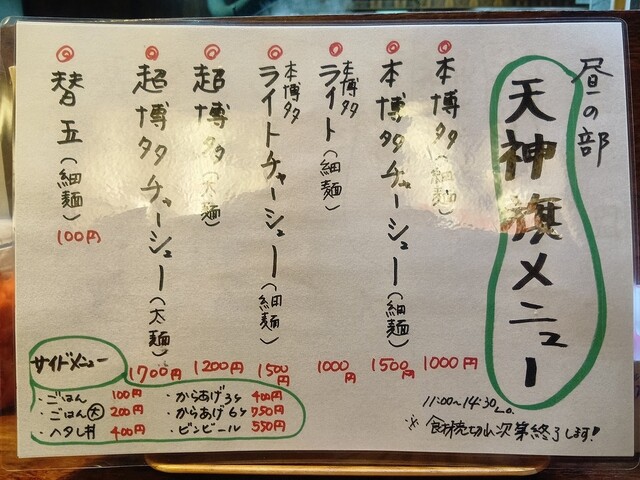 昼の部
天神旗メニュー
◎本博多(細麺) 1000円
◎本博多チャーシュー(細麺) 1500円
◎本博多ライト(細麺) 1000円
◎本博多ライトチャーシュー(細麺) 1500円
◎超博多(太麺) 1200円
◎超博多チャーシュー(太麺) 1700円
◎替玉(細麺) 100円
サイドメニュー
・ごはん 100円
・ごはん(大) 200円
・ヘタレ丼 400円
・からあげ3ヶ 400円
・からあげ6ヶ 750円
・ビンビール 550円
11:00~14:30 L.O.
※食材売切れ次第終了します!